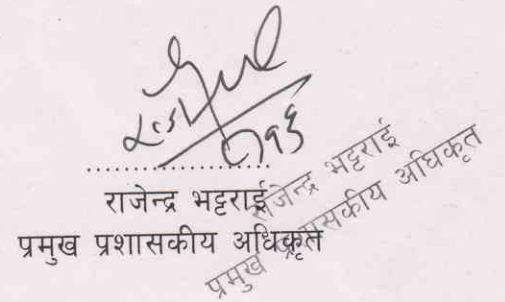 ....................
राजेन्द्र भट्टराई
प्रमुख प्रशासकीय अधिकृत
राजेन्द्र भट्टराई
प्रमुख प्रशासकीय अधिकृत